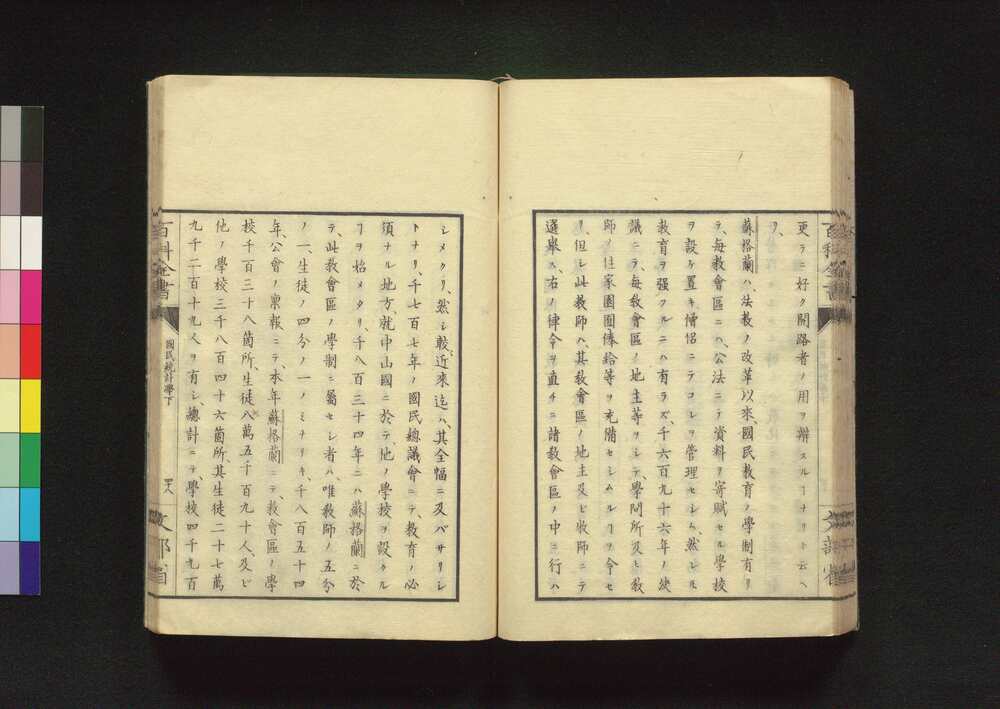 更ラニ好ク開路者ノ用ヲ辨スルヿナリト云ヘ
リ、
蘇格蘭ハ法教ノ改革以來國民教育ノ學制有リ
テ、毎教會區ニハ、公法ニテ資料ヲ寄賦セル學校
ヲ設ケ置キ僧侶ニテコレヲ管理セシム、然レ𪜈
教育ヲ强フルニハ有ラズ、千六百九十六年ノ
議ニテ、毎教會區ノ地主等ヲシテ、學問所及ヒ教
師ノ住家園囿俸給等ヲ充備セシムルヿヲ令セ
リ、但シ此教師ハ、其教會區ノ地主及ビ牧師ニテ
選擧ス、右ノ律令ヲ直チニ諸教會區ノ中ニ行ハ
シメタリ、然レ𪜈較近來迄ハ、其全幅ニ及バサリシ
トナリ、千七百七年ノ國民總議會ニテ、教育ノ必
須ナル地方、就中山國ニ於テ、他ノ學校ヲ設クル
ヿヲ始メタリ、千八百三十四年ニハ蘇格蘭ニ於
テ、此教會區ノ學制ニ屬セシ者ハ、唯教師ノ五分
ノ一、生徒ノ四分ノ一ノミナリキ、千八百五十四
年、公會ノ稟報ニテ、本年蘇格蘭ニテ、教會區ノ學
校千百三十八箇所、生徒八萬五千百九十人、及ビ
他ノ學校三千八百四十六箇所其生徒二十七萬
九千二百十九人ヲ有シ、總計ニテ學校四千九百
百科全書
國民統計學下
四十八
文部省